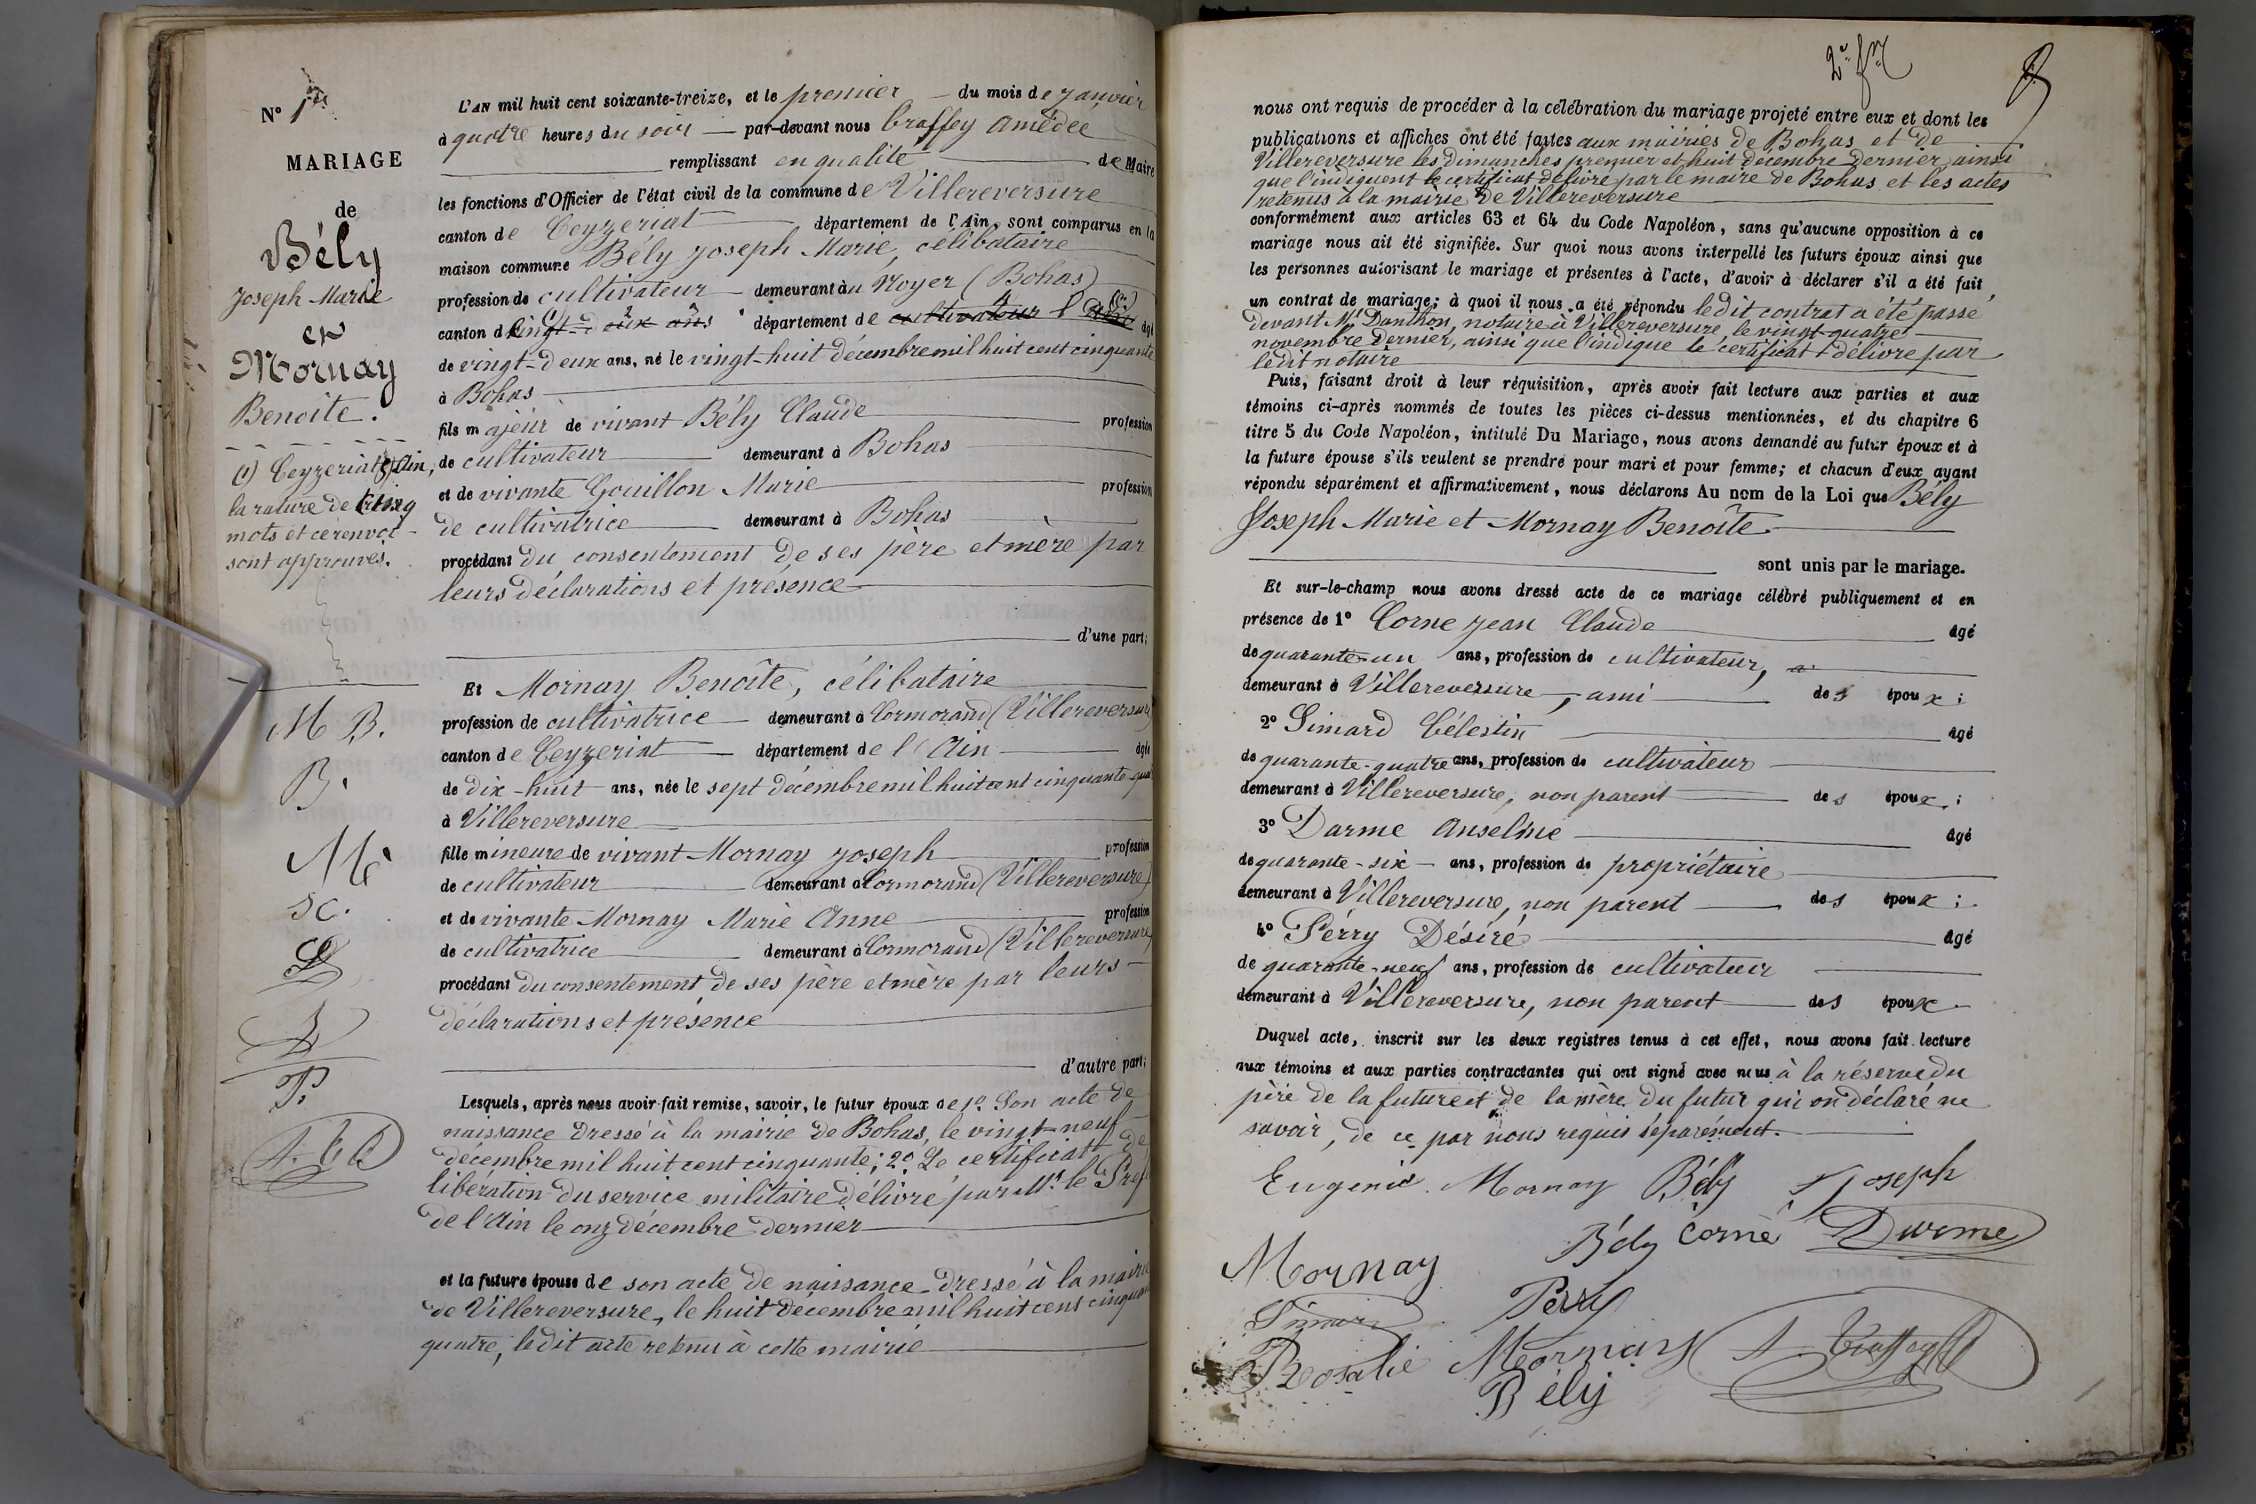 N° 1er
MARIAGE
de
Bély
Joseph Marie
et
Mornay
Benoîte.
(1) Ceyzeriat, Ain,
la rature de cinq
mots et ce renvoi
sont approuvés.
M B.
B.
M
J C.
D
S
P.
A. C
L'AN mil huit cent soixante-treize, et le premier du mois de Janvier
à quatre heures du soir par-devant nous Craffey Amédée
remplissant en qualité de Maire
les fonctions d'Officier de l'état civil de la commune de Villereversure
canton de Ceyzeriat département de l'Ain, sont comparus en la
maison commune Bély Joseph Marie, célibataire
profession de cultivateur demeurant au Noyer (Bohas)
canton de vingt-deux ans département de cultivateur l'Ain (1) âgé
de vingt-deux ans, né le vingt-huit décembre mil huit cent cinquante
à Bohas
fils majeur de vivant Bély Claude profession
de cultivateur demeurant à Bohas
et de vivante Gouillon Marie profession
de cultivatrice demeurant à Bohas
procédant du consentement de ses père et mère par
leurs déclarations et présence
d'une part;
Et Mornay Benoîte, célibataire
profession de cultivatrice demeurant à Cormorand (Villereversure)
canton de Ceyzeriat département de l'Ain âgée
de dix-huit ans, née le sept décembre mil huit cent cinquante-qua
à Villereversure
fille mineure de vivant Mornay Joseph profession
de cultivateur demeurant à Cormorand (Villereversure)
et de vivante Mornay Marie Anne profession
de cultivatrice demeurant à Cormorand (Villereversure)
procédant du consentement de ses père et mère par leurs
déclarations et présence
d'autre part;
Lesquels, après nous avoir fait remise, savoir, le futur époux de 1°. Son acte de
naissance dressé à la mairie de Bohas, le vingt-neuf
décembre mil huit cent cinquante; 2°. Le certificat de
libération du service militaire délivré par Mr. le Préf
de l'Ain le onz décembre dernier
et la future épouse de son acte de naissance dressé à la mairie
de Villereversure, le huit décembre mil huit cent cinquan
quatre, ledit acte retenu à cette mairie
2e. fr
8
nous ont requis de procéder à la célébration du mariage projeté entre eux et dont les
publications et affiches ont été faites aux mairies de Bohas et de
Villereversure les Dimanches premier et huit décembre dernier ainsi
que l'indiquent le certificat délivré par le maire de Bohas et les actes
retenus à la mairie de Villereversure
conformément aux articles 63 et 64 du Code Napoléon, sans qu'aucune opposition à ce
mariage nous ait été signifiée. Sur quoi nous avons interpellé les futurs époux ainsi que
les personnes autorisant le mariage et présentes à l'acte, d'avoir à déclarer s'il a été fait
un contrat de mariage; à quoi il nous a été répondu ledit contrat a été passé
devant Mr Danthon, notaire à Villereversure, le vingt-quatre
novembre dernier, ainsi que l'indique le certificat délivré par
ledit notaire
Puis, faisant droit à leur réquisition, après avoir fait lecture aux parties et aux
témoins ci-après nommés de toutes les pièces ci-dessus mentionnées, et du chapitre 6
titre 5 du Code Napoléon, intitulé Du Mariage, nous avons demandé au futur époux et à
la future épouse s'ils veulent se prendre pour mari et pour femme; et chacun d'eux ayant
répondu séparément et affirmativement, nous déclarons Au nom de la Loi que Bély
Joseph Marie et Mornay Benoîte
sont unis par le mariage.
Et sur-le-champ nous avons dressé acte de ce mariage célébré publiquement et en
présence de 1° Corne Jean Claude âgé
de quarante-un ans, profession de cultivateur,
demeurant à Villereversure, ami des époux;
2° Simard Célestin âgé
de quarante-quatre ans, profession de cultivateur
demeurant à Villereversure, non parent des époux;
3° Darme Anselme âgé
de quarante-six ans, profession de propriétaire
demeurant à Villereversure, non parent des époux;
4° Perry Désiré âgé
de quarante-neuf ans, profession de cultivateur
demeurant à Villereversure, non parent des époux
Duquel acte, inscrit sur les deux registres tenus à cet effet, nous avons fait lecture
aux témoins et aux parties contractantes qui ont signé avec nous à la réserve du
père de la future et de la mère du futur qui on déclaré ne
savoir, de ce par nous requis séparément.
Eugenie Mornay Bély Joseph
Mornay Bély Corne Darme
Simard Perry
Rosalie Mornay A. Craffey
Bély